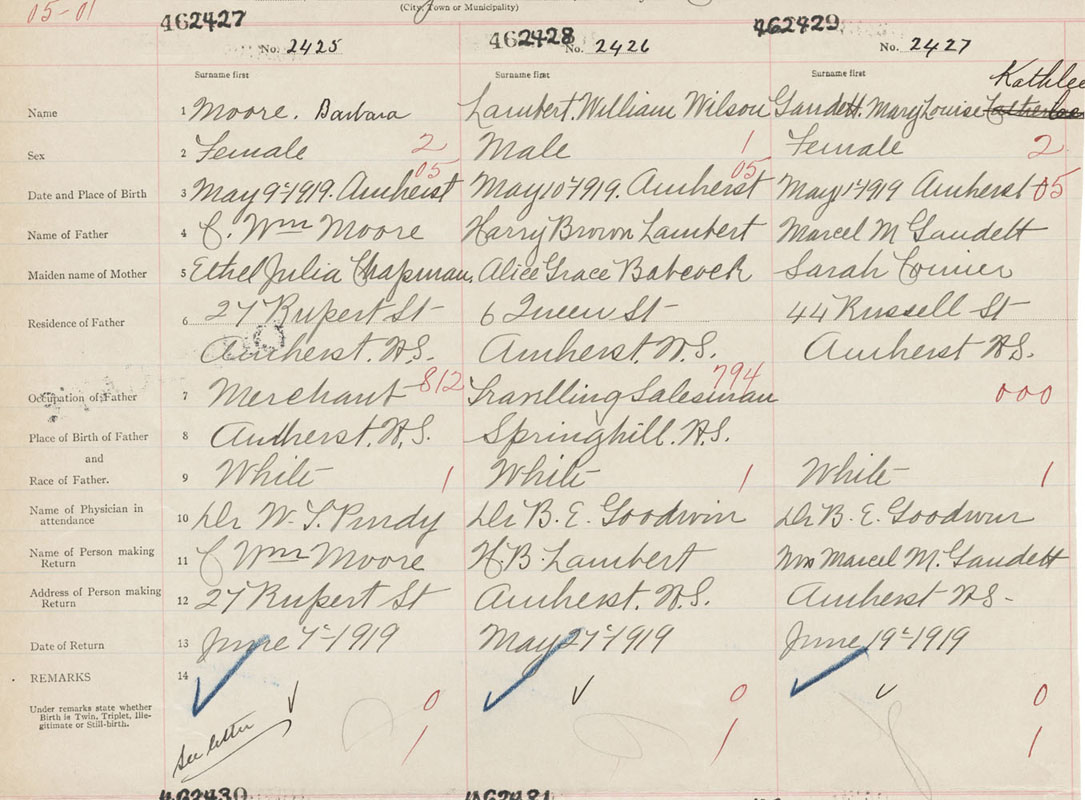 05-01
(City, Town or Municipality)
462427 462428 462429
No. 2425 No. 2426 No. 2427
Surname first Surname first Surname first
Name 1 Moore. Barbara Lambert. William Wilson Gaudett. Mary Louise
Sex 2 Female 2 Male 1 Female 2
05 05
Date and Place of Birth 3 May 9th 1919. Amherst May 10th 1919. Amherst May 1st 1919 Amherst 05
Name of Father 4 C. Wm Moore Harry Brown Lambert Marcel M Gaudett
Maiden name of Mother 5 Ethel Julia Chapman. Alice Grace Babcock Sarah
Residence of Father 6 27 Rupert St 6 Queen St 44 Russell St
Amherst. N.S. Amherst. N.S. Amherst N.S.
Occupation of Father 7 Merchant 812 Travelling Salesman 794 000
Place of Birth of Father 8 Amherst. N.S. Springhill. N.S.
and
Race of Father. 9 White 1 White 1 White 1
Name of Physician in
attendance 10 Dr W. T. Purdy Dr B. E. Goodwin Dr B. E. Goodwin
Name of Person making
Return 11 C Wm Moore H. B. Lambert Mrs Marcel M. Gaudett
Address of Person making
Return 12 27 Rupert St Amherst. N.S. Amherst N.S-
Date of Return 13 June 7th 1919 May 27th 1919 June 19th 1919
REMARKS 14
Under remarks state whether
Birth is Twin, Triplet, Ille-
gitimate or Still-birth.
0 0 0
1 1 1
See letter
462430 462431